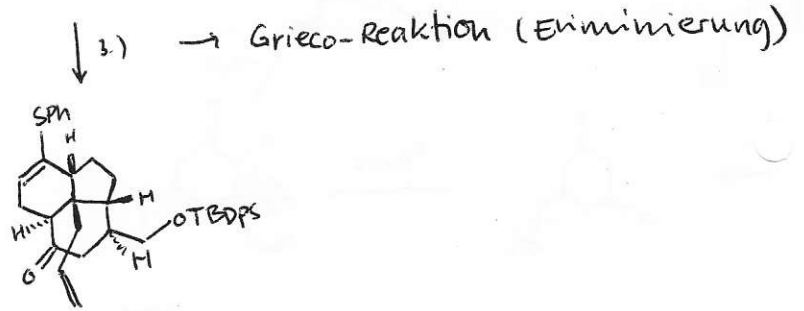 3.) → Grieco-Reaktion (Eliminierung)
SPh
H
H
H
OTBDPS
H
O